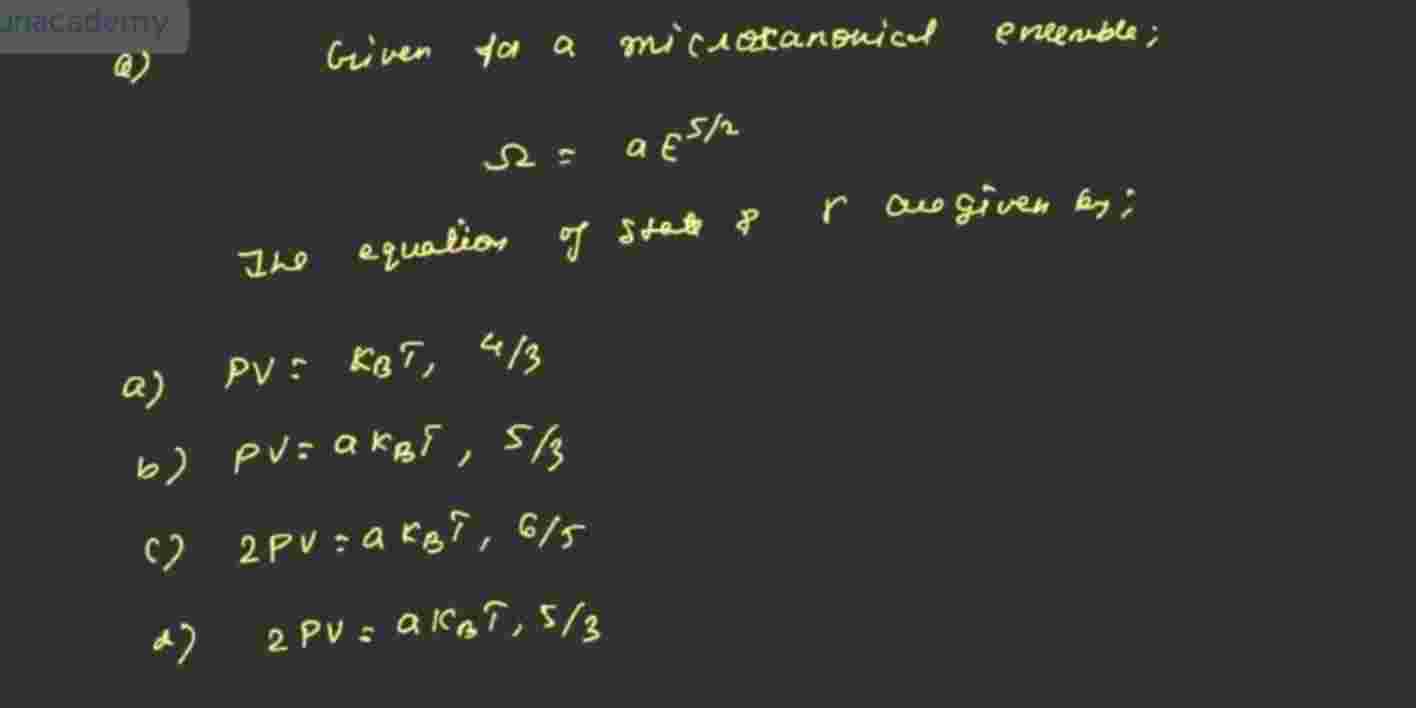 unacademy
Q) Given for a microcanonical ensemble;
Ω = a E^5/2
The equation of state & r are given by;
a) PV = K_BT, 4/3
b) PV = a K_BT, 5/3
c) 2PV = a K_BT, 6/5
d) 2PV = a K_BT, 5/3